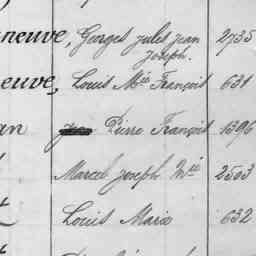 neuve, Georges jules jean 2735
joseph.
euve, Louis Mie François 631
an Pierre François 1396
Marcel joseph Mie 2503
Louis Marie 632